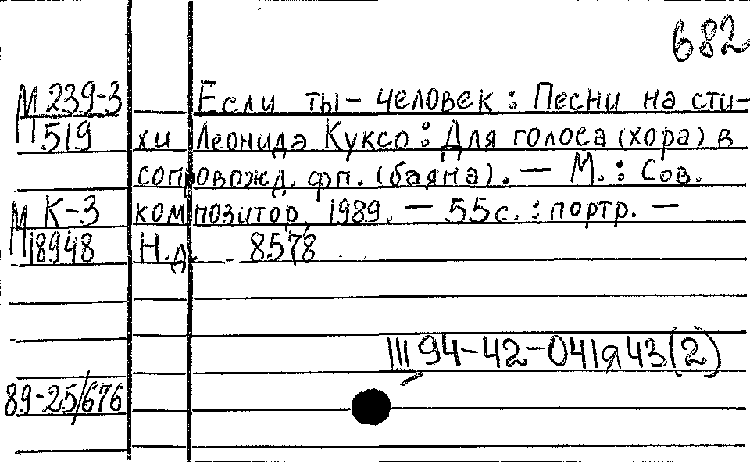 682
М 239-3
519
Если ты - человек : Песни на сти-
хи Леонида Куксо : Для голоса (хора) в
сопровожд. фп. (баяна). — М. : Сов.
М К-3
18948
композитор, 1989. — 55с. : портр. —
Н.д. 8578
III 94-42-041я43(2)
89-25/676